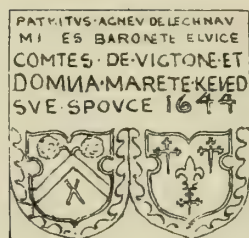 PATRITVS·AGNEV DELECHNAV
MI ES BARONETE ELVICE
COMTES·DE·VIGTONE·ET
DOMNA·MARETE·KENED
SVE·SPOVCE 1644